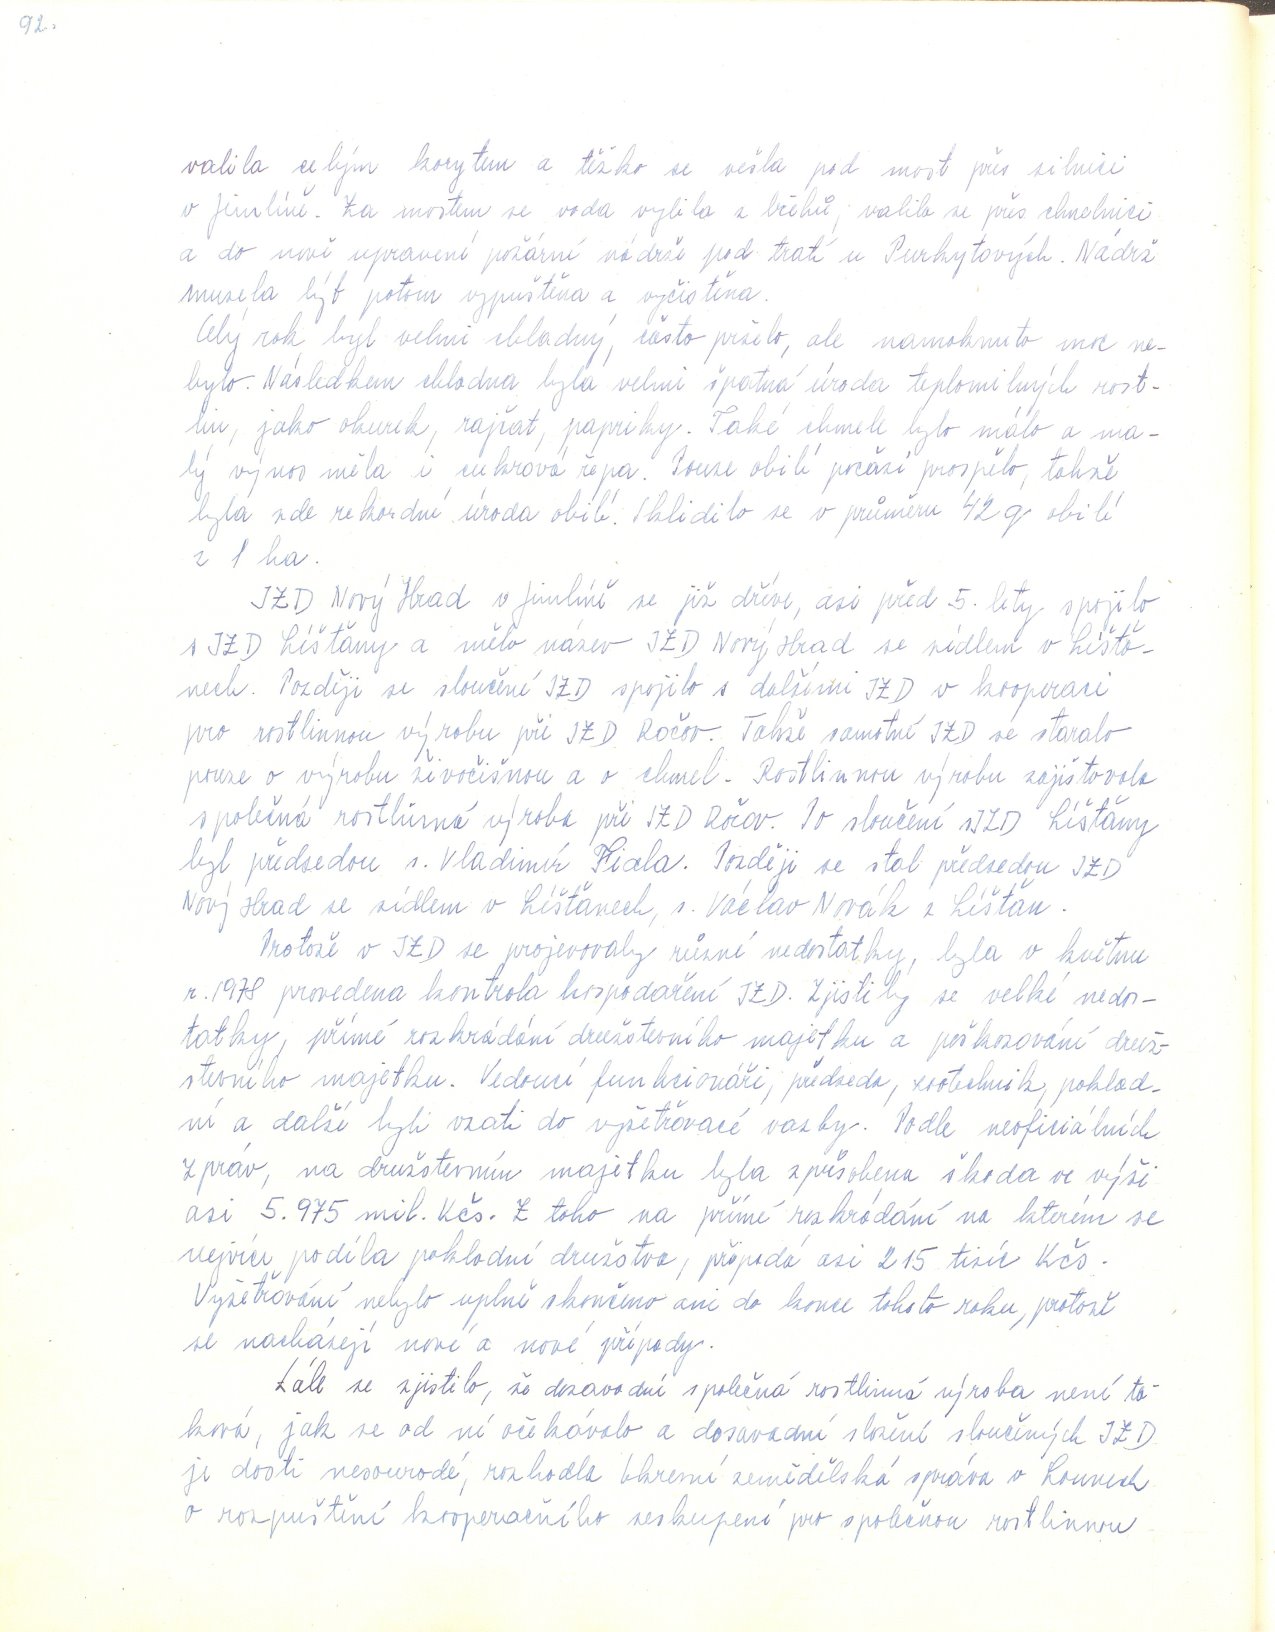 92.
valila celým korytem a těžko se vešla pod most přes silnici
v Jimlíně. Za mostem se voda vylila z břehů, valila se přes chmelnici
a do nově upravené požární nádrže pod tratí u Purkytových. Nádrž
musela být potom vypuštěna a vyčistěna.
Celý rok byl velmi chladný, často pršelo, ale namoknuto moc ne-
bylo. Následkem chladna byla velmi špatná úroda teplomilných rost-
lin, jako okurek, rajčat, papriky. Také chmele bylo málo a ma-
lý výnos měla i cukrová řepa. Pouze obilí počasí prospělo, takže
byla zde rekordní úroda obilí. Sklidilo se v průměru 42 q obilí
z 1 ha.
JZD Nový Hrad v Jimlíně se již dříve, asi před 5. lety spojilo
s JZD Líšťany a mělo název JZD Nový Hrad se sídlem v Líšťa-
nech. Později se sloučené JZD spojilo s dalšími JZD v kooperaci
pro rostlinnou výrobu při JZD Ročov. Takže samotné JZD se staralo
pouze o výrobu živočišnou a o chmel. Rostlinnou výrobu zajišťovala
společná rostlinná výroba při JZD Ročov. Po sloučení s JZD Líšťany
byl předsedou s. Vladimír Fiala. Později se stal předsedou JZD
Nový Hrad se sídlem v Líšťanech, s. Václav Novák z Líšťan.
Protože v JZD se projevovaly různé nedostatky, byla v květnu
r. 1978 provedena kontrola hospodaření JZD. Zjistily se velké nedos-
tatky, přímé rozkrádání družstevního majetku a poškozování druž-
stevního majetku. Vedoucí funkcionáři, předseda, zootechnik, poklad-
ní a další byli vzati do vyšetřovací vazby. Podle neoficiálních
zpráv, na družstevním majetku byla způsobena škoda ve výši
asi 5.975 mil. Kčs. Z toho na přímé rozkrádání na kterém se
nejvíce podíla pokladní družstva, připadá asi 215 tisíc Kčs.
Vyšetřování nebylo uplně skončeno ani do konce tohoto roku, protože
se nacházejí nové a nové případy.
Dále se zjistilo, že dosavadní společná rostlinná výroba není ta-
ková, jak se od ní očekávalo a dosavadní složení sloučených JZD
je dosti nesourodé, rozhodla Okresní zemědělská správa v Lounech
o rozpuštění kooperačního seskupení pro společnou rostlinnou